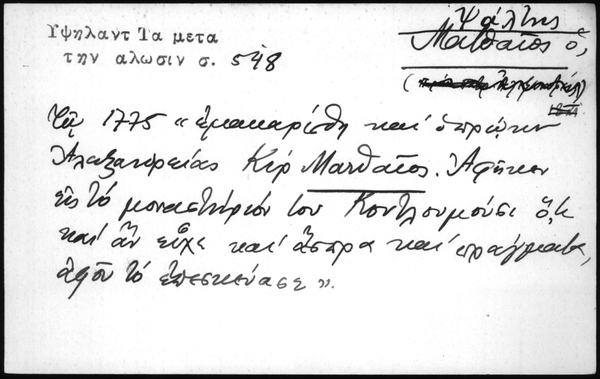 Υψηλαντ Τα μετα
την αλωσιν σ. 548
Ψάλτης
Ματθαῖος ὁ,
Τῷ 1775 « ἐμακαρίσθη καὶ ὁ πρώην
Ἀλεξανδρείας Κὺρ Ματθαῖος. Ἀφῆκεν
εἰς τὸ μοναστήριόν του Κουτλουμούσι ὅ,τι
καὶ ἂν εἶχε καὶ ἄσπρα καὶ πράγματα,
ἀφοῦ τὸ ἐπεσκεύασε ».